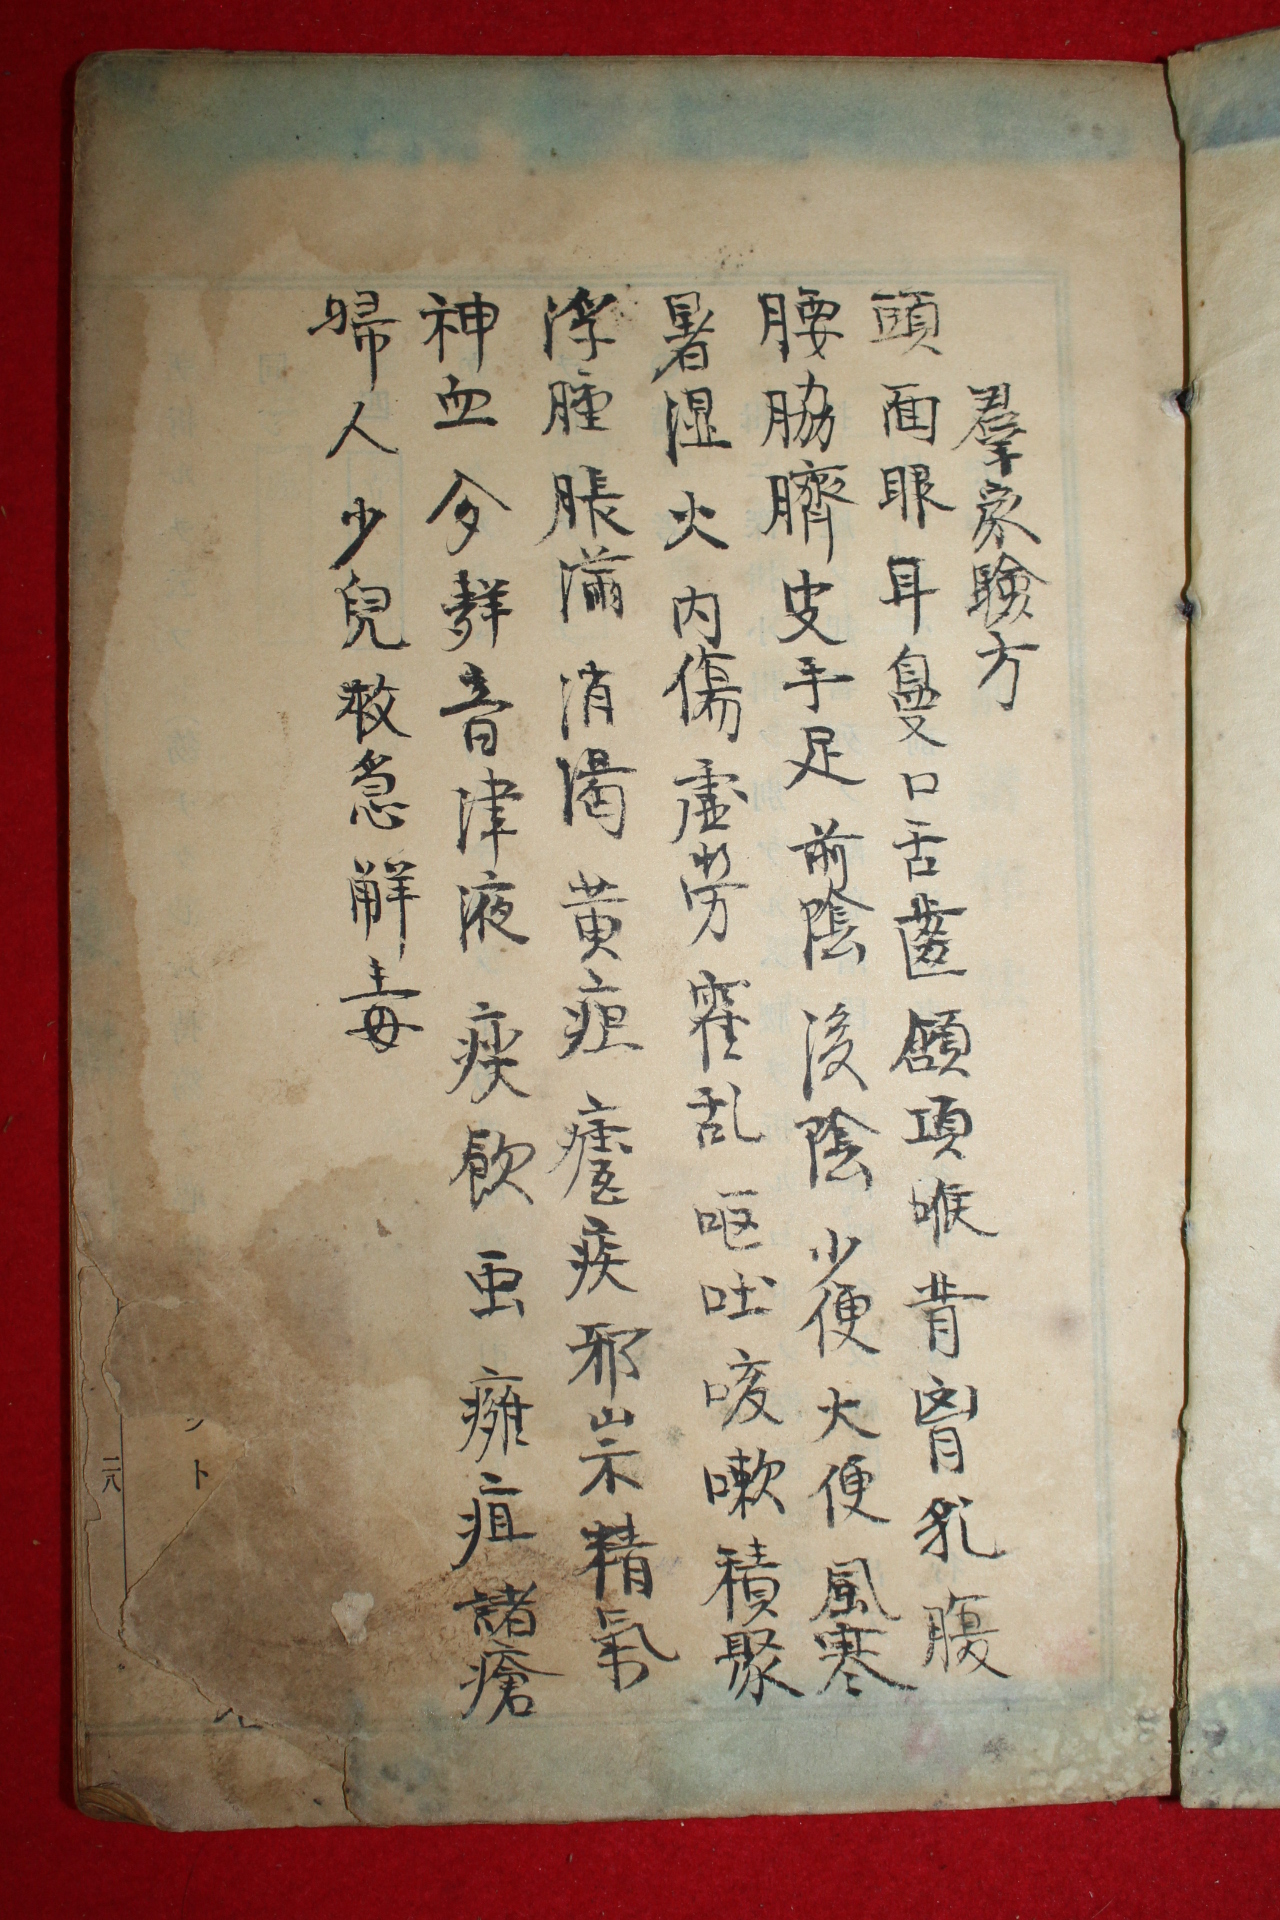 羣家驗方
頭面眼耳鼻口舌齒頷項喉背胷乳腹
腰脇臍皮手足前陰後陰少便大便風寒
暑湿火內傷虛劳霍乱呕吐咳嗽積聚
浮腫脹滿消渴黄疸瘧疾邪祟精氣
神血夢聲音津液痰飮虫癰疽諸瘡
婦人少兒救急解毒
二八
ト